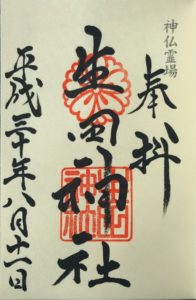 神仏霊場
奉拝
生田神社
平成三十年八月十一日